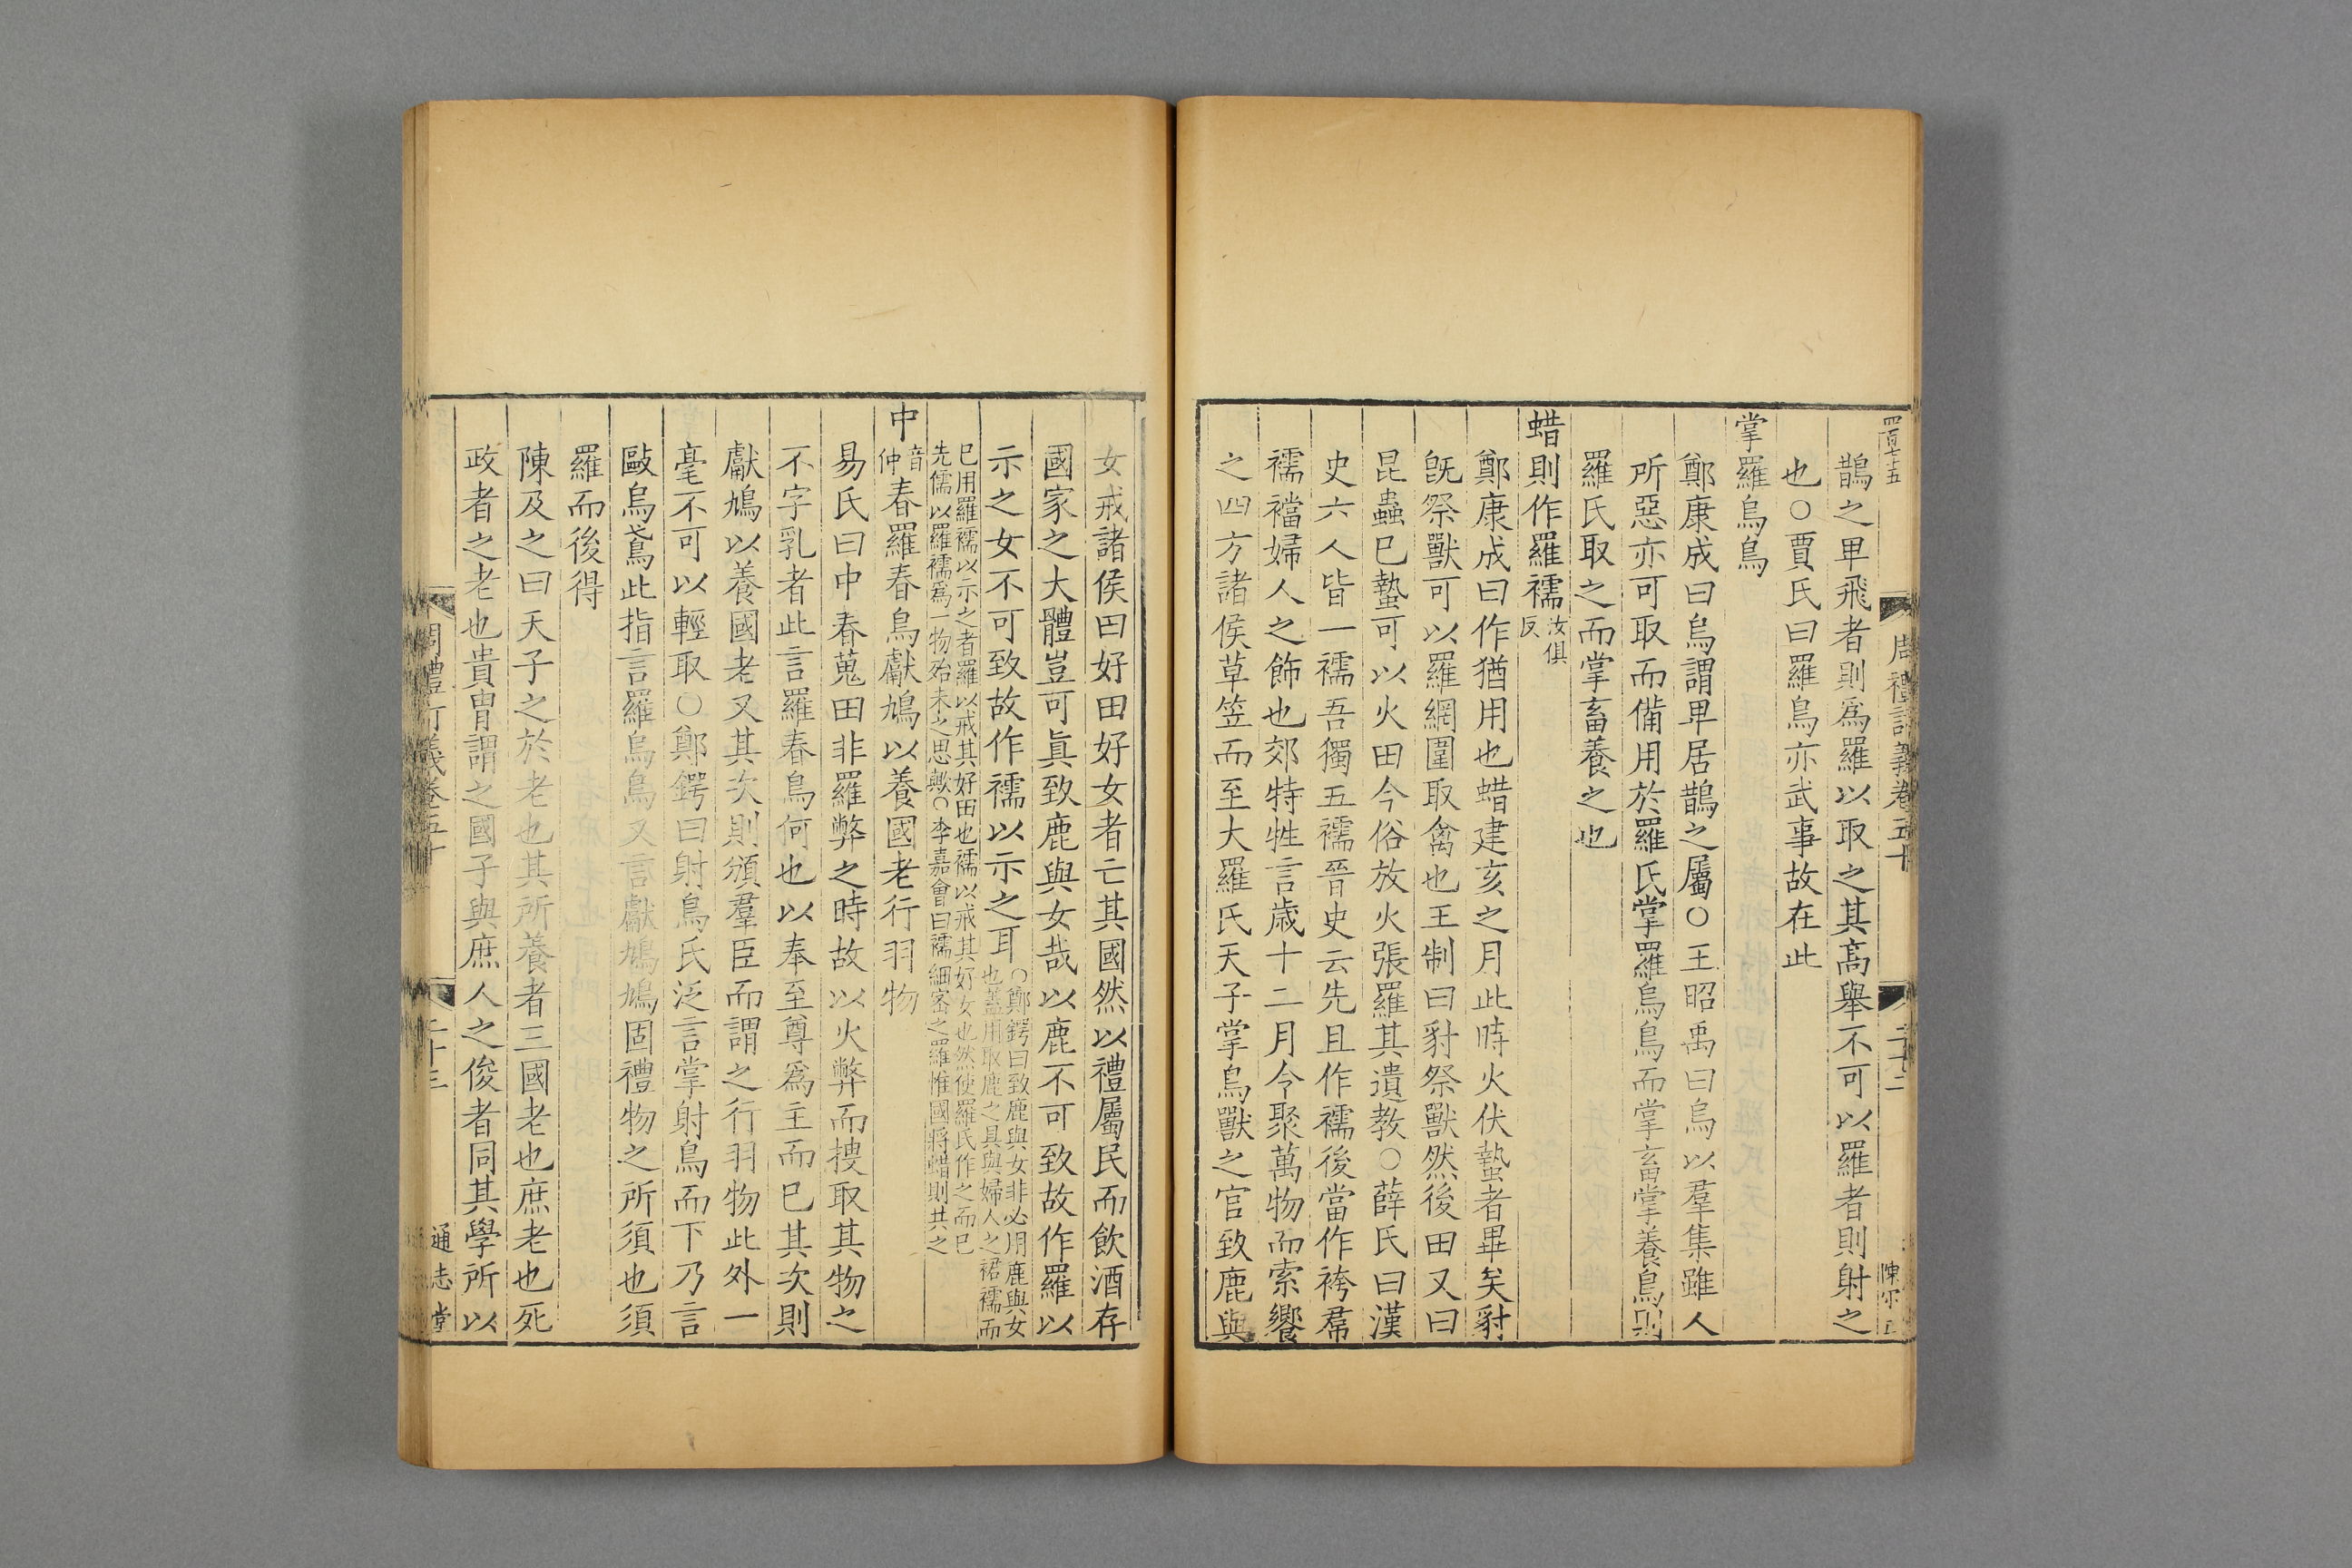 鵲之卑飛者則爲羅以取之其高舉不可以羅者則射之
也○賈氏曰羅鳥亦武事故在此
掌羅烏鳥
鄭康成曰烏謂卑居鵲之屬○王昭禹曰烏以羣集雖人
所惡亦可取而備用於羅氏掌羅烏鳥而掌畜掌養鳥則
羅氏取之而掌畜養之也
蜡則作羅襦汝俱反
鄭康成曰作猶用也蜡建亥之月此時火伏蟄者畢矣豺
旣祭獸可以羅網圍取禽也王制曰豺祭獸然後田又曰
昆蟲已蟄可以火田今俗放火張羅其遺敎○薛氏曰漢
史六人皆一襦吾獨五襦晉史云先且作襦後當作袴帬
襦襠婦人之飾也郊特牲言歲十二月令聚萬物而索饗
之四方諸侯草笠而至大羅氏天子掌鳥獸之官致鹿與
女戒諸侯曰好田好女者亡其國然以禮屬民而飮酒存
國家之大體豈可眞致鹿與女哉以鹿不可致故作羅以
示之女不可致故作襦以示之耳○鄭鍔曰致鹿與女非必用鹿與女
也蓋用取鹿之具與婦人之裙襦而
已用羅襦以示之者羅以戒其好田也襦以戒其好女也然使羅氏作之而已
先儒以羅襦爲一物殆未之思歟○李嘉會曰襦細密之羅惟國將蜡則共之
中音仲春羅春鳥獻鳩以養國老行羽物
易氏曰中春蒐田非羅弊之時故以火弊而搜取其物之
不字乳者此言羅春鳥何也以奉至尊爲主而已其次則
獻鳩以養國老又其次則頒羣臣而謂之行羽物此外一
毫不可以輕取○鄭鍔曰射鳥氏泛言掌射鳥而下乃言
毆烏鳶此指言羅烏鳥又言獻鳩鳩固禮物之所須也須
羅而後得
陳及之曰天子之於老也其所養者三國老也庶老也死
政者之老也貴胄謂之國子與庶人之俊者同其學所以
通志堂